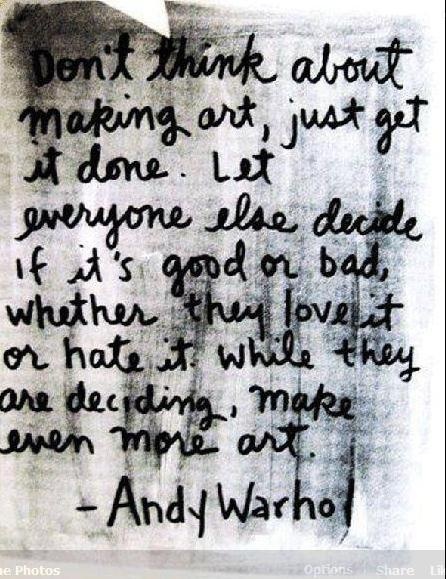 Don't think about
making art, just get
it done. Let
everyone else decide
if it's good or bad,
whether they love it
or hate it. While they
are deciding, make
even more art.
- Andy Warhol
Photos Options Share